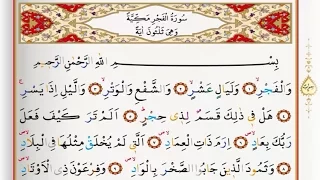 سُورَةُ الْفَجْرِ مَكِّيَّةٌ
وَهِيَ ثَلٰثُونَ اٰيَةً
بِسْمِ اللّٰهِ الرَّحْمٰنِ الرَّحِيمِ
وَالْفَجْرِۙ ﴿١﴾ وَلَيَالٍ عَشْرٍۙ ﴿٢﴾ وَالشَّفْعِ وَالْوَتْرِۙ ﴿٣﴾ وَالَّيْلِ اِذَا يَسْرِۚ
﴿٤﴾ هَلْ فِي ذٰلِكَ قَسَمٌ لِذِي حِجْرٍۜ ﴿٥﴾ اَلَمْ تَرَ كَيْفَ فَعَلَ
رَبُّكَ بِعَادٍۙۖ ﴿٦﴾ اِرَمَ ذَاتِ الْعِمَادِۙۖ ﴿٧﴾ اَلَّتِي لَمْ يُخْلَقْ مِثْلُهَا فِي الْبِلَادِۙۖ
﴿٨﴾ وَثَمُودَ الَّذِينَ جَابُوا الصَّخْرَ بِالْوَادِۙۖ ﴿٩﴾ وَفِرْعَوْنَ ذِي الْاَوْتَادِۙۖ